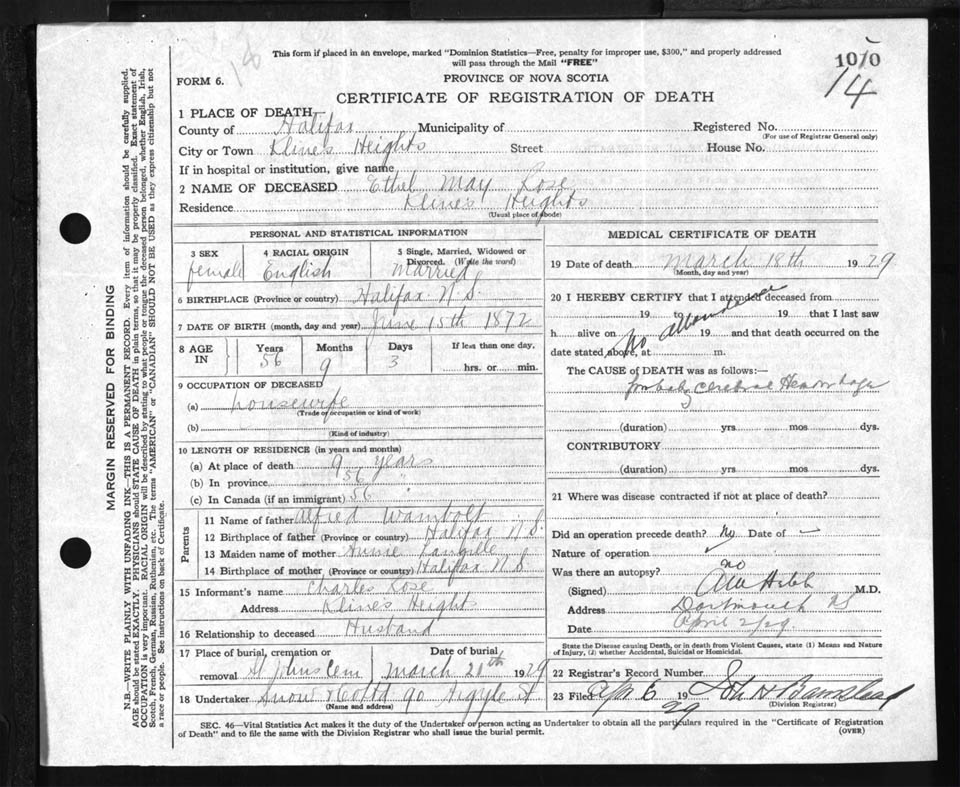 This form if placed in an envelope, marked "Dominion Statistics—Free, penalty for improper use, $300," and properly addressed
will pass through the Mail "FREE"
1010
14
18
FORM 6.
PROVINCE OF NOVA SCOTIA
CERTIFICATE OF REGISTRATION OF DEATH
1 PLACE OF DEATH
County of Halifax Municipality of Registered No.
(For use of Registrar General only)
City or Town Kline's Heights Street House No.
If in hospital or institution, give name
2 NAME OF DECEASED Ethel May Rose
Residence Kline's Heights
(Usual place of abode)
PERSONAL AND STATISTICAL INFORMATION
3 SEX female
4 RACIAL ORIGIN English
5 Single, Married, Widowed or Divorced. (Write the word) Married
6 BIRTHPLACE (Province or country) Halifax N.S.
7 DATE OF BIRTH (month, day and year) June 15th 1872
8 AGE IN Years 56 Months 9 Days 3 If less than one day, hrs. or min.
9 OCCUPATION OF DECEASED
(a) housewife
(Trade or occupation or kind of work)
(b)
(Kind of industry)
10 LENGTH OF RESIDENCE (in years and months)
(a) At place of death 9 years
(b) In province 56
(c) In Canada (if an immigrant) 56
Parents
11 Name of father Alfred Wambolt
12 Birthplace of father (Province or country) Halifax N.S.
13 Maiden name of mother Annie Langille
14 Birthplace of mother (Province or country) Halifax N.S.
15 Informant's name Charles Rose
Address Kline's Heights
16 Relationship to deceased Husband
17 Place of burial, cremation or removal St Johns Cem Date of burial March 20th 1929
18 Undertaker Snow & Co Ltd 90 Argyle St
(Name and address)
MEDICAL CERTIFICATE OF DEATH
19 Date of death March 18th 1929
(Month, day and year)
20 I HEREBY CERTIFY that I attended deceased from
19 to 19 that I last saw
h alive on No attendance 19 and that death occurred on the
date stated above, at m.
The CAUSE of DEATH was as follows:—
probably cerebral Hemorrhage
(duration) yrs mos dys.
CONTRIBUTORY
(duration) yrs mos dys.
21 Where was disease contracted if not at place of death?
Did an operation precede death? No Date of —
Nature of operation
Was there an autopsy? no
(Signed) M.D.
Address Dartmouth NS
Date April 2/29
State the Disease causing Death, or in death from Violent Causes, state (1) Means and Nature
of Injury, (2) whether Accidental, Suicidal or Homicidal.
22 Registrar's Record Number
23 Filed 6 1929 John H Barnstead
(Division Registrar)
SEC. 46—Vital Statistics Act makes it the duty of the Undertaker or person acting as Undertaker to obtain all the particulars required in the "Certificate of Registration
of Death" and to file the same with the Division Registrar who shall issue the burial permit.
(OVER)
MARGIN RESERVED FOR BINDING
N.B.—WRITE PLAINLY WITH UNFADING INK—THIS IS A PERMANENT RECORD. Every item of information should be carefully supplied.
AGE should be stated EXACTLY. PHYSICIANS should STATE CAUSE OF DEATH in plain terms, so that it may be properly classified. Exact statement of
OCCUPATION is very important. RACIAL ORIGIN will be described by stating to what people or tongue the deceased person belonged, whether English, Irish,
Scotch, French, German, Russian, Ruthenian, etc. The terms "AMERICAN" or "CANADIAN" SHOULD NOT BE USED as they express citizenship but not
a race or people. See instructions on back of Certificate.